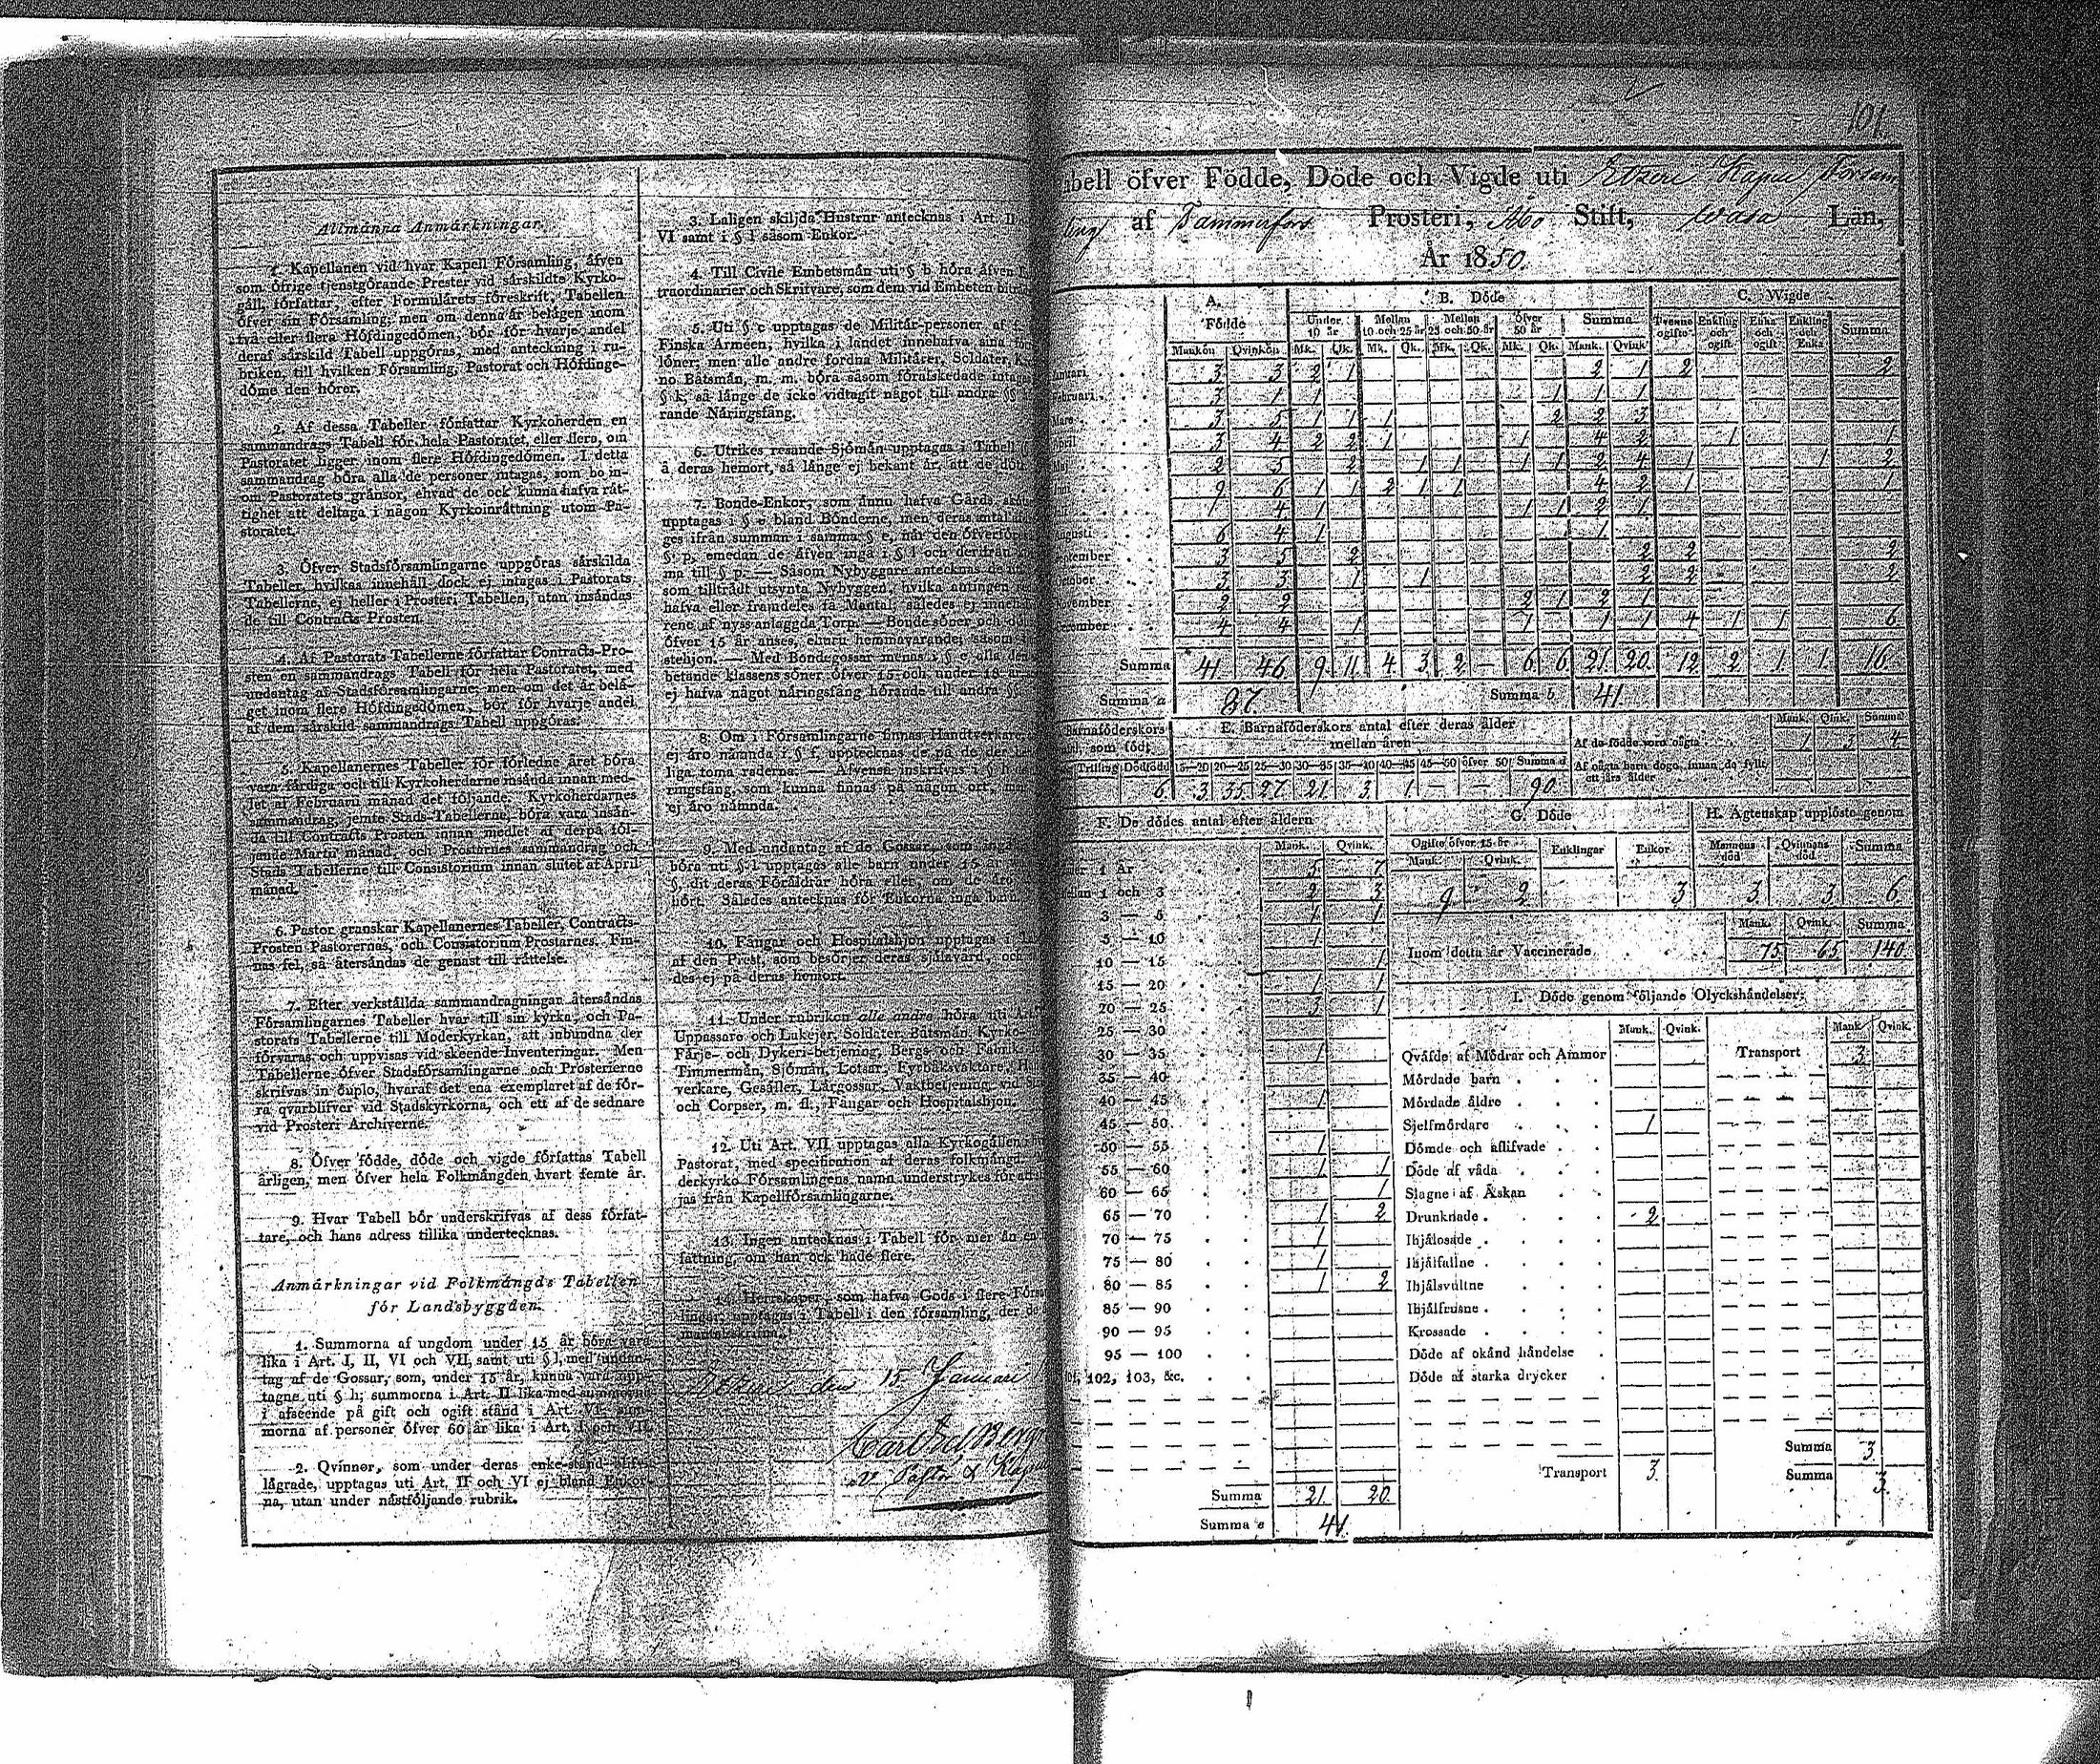 Allmänna Anmärkningar.
1. Kapellanen vid hvar Kapell Församling, äfven
som öfrige tjenstgörande Prester vid särskildte Kyrko-
gäll, författar, efter Formulärets föreskrift, Tabellen
öfver sin Församling; men om denna är belägen inom
två eller flera Höfdingedömen, bör för hvarje andel
deraf särskild Tabell uppgöras, med anteckning i ru-
briken, till hvilken Församling, Pastorat och Höfdinge-
döme den hörer.
2. Af dessa Tabeller författar Kyrkoherden en
sammandrags Tabell för hela Pastoratet, eller flera, om
Pastoratet ligger inom flere Höfdingedömen. I detta
sammandrag böra alla de personer intagas, som bo in-
om Pastoratets gränsor, ehvad de ock kunna hafva rät-
tighet att deltaga i någon Kyrkoinrättning utom Pa-
storatet.
3. Öfver Stadsförsamlingarne uppgöras särskilda
Tabeller, hvilkas innehåll dock ej intagas i Pastorats
Tabellerne, ej heller i Prosteri Tabellen, utan insändas
de till Contracts Prosten.
4. Af Pastorats Tabellerne författar Contracts-Pro-
sten en sammandrags Tabell för hela Pastoratet, med
undantag af Stadsförsamlingarne; men om det är belä-
get inom flere Höfdingedömen, bör för hvarje andel
af dem särskild sammandrags Tabell uppgöras.
5. Kapellanernes Tabeller för förledne året böra
vara färdiga och till Kyrkoherdarne insända innan med-
let af Februarii månad det följande. Kyrkoherdarnes
sammandrag, jemte Stads-Tabellerne, böra vara insän-
da till Contracts Prosten innan medlet af derpå föl-
jande Martii månad, och Prostarnes sammandrag och
Stads Tabellerne till Consistorium innan slutet af April
månad.
6. Pastor granskar Kapellanernes Tabeller, Contracts-
Prosten Pastorernas, och Consistorium Prostarnes. Fin-
nas fel, så återsändas de genast till rättelse.
7. Efter verkställda sammandragningar återsändas
Församlingarnes Tabeller hvar till sin kyrka, och Pa-
storats Tabellerne till Moderkyrkan, att inbundna der
förvaras och uppvisas vid skeende Inventeringar. Men
Tabellerne öfver Stadsförsamlingarne och Prosterierne
skrifvas in duplo, hvaraf det ena exemplaret af de för-
ra qvarblifver vid Stadskyrkorna, och ett af de sednare
vid Prosteri Archiverne.
8. Öfver födde, döde och vigde författas Tabell
årligen, men öfver hela Folkmängden hvart femte år.
9. Hvar Tabell bör underskrifvas af dess förfat-
tare, och hans adress tillika undertecknas.
Anmärkningar vid Folkmängds Tabellen
för Landsbyggden.
1. Summorna af ungdom under 15 år böra vara
lika i Art. I, II, VI och VII, samt uti § l, med undan-
tag af de Gossar, som, under 15 år, kunna vara upp-
tagne uti § h; summorna i Art. II lika med summorna
i afseende på gift och ogift stånd i Art. VI; sum-
morna af personer öfver 60 år lika i Art. I och VII.
2. Qvinnor, som under deras enke-stånd blifvit
lägrade, upptagas uti Art. II och VI ej bland Enkor-
na, utan under nästföljande rubrik.
3. Laligen skiljda Hustrur antecknas i Art. II
VI samt i § l såsom Enkor.
4. Till Civile Embetsmän uti § b höra äfven
traordinarier och Skrifvare, som dem vid Embeten biträda
5. Uti § c upptagas de Militär-personer af f.
Finska Armeen, hvilka i landet innehafva sina
löner; men alle andre fordna Militärer, Soldater,
no Båtsmän, m. m. böra såsom förafskedade intagas
§ k, så länge de icke vidtagit något till andra §§
rande Näringsfång.
6. Utrikes resande Sjömän upptagas i Tabell
å deras hemort, så länge ej bekant är, att de dött
7. Bonde-Enkor, som ännu hafva Gårds
upptagas i § e bland Bönderne, men deras antal
ges ifrån summan i samma § e, när den öfverföres
§ p, emedan de äfven ingå i § l och derifrån
ma till § p. — Såsom Nybyggare antecknas de
som tillträdt utsynta Nybyggen, hvilka antingen
hafva eller framdeles få Mantal, således ej inneha-
rene af nyss anlaggda Torp. — Bonde söner och
öfver 15 år anses, ehuru hemmavarande, såsom
stehjon. — Med Bondegossar menas i § e alla
betände klassens söner öfver 15 och under 18 år
ej hafva något näringsfång hörande till andra §§
8. Om i Församlingarne finnas Handtverkare,
ej äro nämnda i § f, upptecknas de på de der
liga toma raderna. — Äfvenså inskrifvas i § h
ringsfång, som kunna finnas på någon ort,
ej äro nämnda.
9. Med undantag af de Gossar, som
böra uti § l upptagas alle barn under 15 år
§, dit deras Föräldrar höra eller, om de äro
hört. Således antecknas för Enkorna inga barn.
10. Fångar och Hospitalshjon upptagas i
af den Prest, som besörjer deras själavård, och
des ej på deras hemort.
11. Under rubriken alle andre höra uti Art.
Uppassare och Lakejer, Soldater, Båtsmän, Kyrko-
Färje- och Dykeri-betjening, Bergs och Fabriks
Timmermän, Sjömän, Lotsar, Fyrbåksvaktare,
verkare, Gesäller, Lärgossar, Vaktbetjening vid
och Corpser, m. fl., Fångar och Hospitalshjon.
12. Uti Art. VII upptagas alla Kyrkogällen i
Pastorat, med specification af deras folkmängd.
derkyrko Församlingens namn understrykes för att
jas från Kapellförsamlingarne.
13. Ingen antecknas i Tabell för mer än en
fattning, om han ock hade flere.
14. Herrskaper, som hafva Gods i flere Försam-
lingar, upptagas i Tabell i den församling, der de
mantalskrifna.
den 15 Januari
Carl
v. Pastor &
101
abell öfver Födde, Döde och Vigde uti Etseri Kapell Försam
ling af Tammerfors Prosteri, Åbo Stift, Wasa Län,
År 1850.
A. Födde B. Döde C. Wigde
Under 10 år Mellan 10 och 25 år Mellan 25 och 50 år Öfver 50 år Summa Tvenne ogifte Enkling och ogift Enka och ogift Enkling och Enka Summa
Mankön Qvinkön Mk. Qk. Mk. Qk. Mk. Qk. Mk. Qk. Mank. Qvink
anuari. 3 3 2 1 2 1 2 2
ebruari. 3 1 1 1 1 1
Mars 3 5 1 1 1 2 2 3
April 3 4 2 2 1 1 4 2 1 1
Maj 2 5 2 1 1 1 1 2 4 1 1 2
9 6 1 1 2 1 1 4 2 1 1
1 4 1 1 1 2 1
ugusti 6 4 1 1
eptember 3 5 2 2 2 2
ctober 3 3 1 1 2 2 2
ovember 2 2 2 1 2 1
ecember 4 4 1 1 1 1 4 1 1 6
Summa 41. 46 9. 11. 4. 3. 2. — 6. 6 21. 20. 12. 2. 1. 1. 16.
Summa a 87. Summa b 41.
Barnaföderskors
som födt
Trilling Dödfödde
6.
E. Barnaföderskors antal efter deras ålder
mellan åren
15—20 20—25 25—30 30—35 35—40 40—45 45—50 öfver 50 Summa d
3. 35. 27. 21. 3. 1. — — 90.
Mank. Qvink. Summa
Af de födde voro oägta 1 3 4.
Af oägta barn dögo, innan de fyllt
ett års ålder
F. De dödes antal efter åldern
Mank. Qvink.
1 År 5. 7
1 och 3 2 3
3 — 5 1 1
5 — 10 1
10 — 15 1
15 — 20 1 1
20 — 25 3 1
25 — 30
30 — 35 1
35 — 40
40 — 45 1
45 — 50
50 — 55 1
55 — 60 1 1
60 — 65 1
65 — 70 1 2
70 — 75 1
75 — 80 1
80 — 85 1 2
85 — 90
90 — 95
95 — 100
102, 103, &c.
Summa 21. 20.
Summa e 41.
G. Döde
Ogifte öfver 15 år Enklingar Enkor
Mank. Qvink.
9 2 3
H. Ägtenskap upplöste genom
Mannens död Qvinnans död Summa
3. 3. 6.
Mank. Qvink. Summa
Inom detta år Vaccinerade 75. 65 140.
I. Döde genom följande Olyckshändelser:
Mank. Qvink. Mank Qvink.
Qväfde af Mödrar och Ammor Transport 3
Mördade barn
Mördade äldre
Sjelfmördare 1
Dömde och aflifvade
Döde af våda
Slagne af Åskan
Drunknade 2
Ihjälosade
Ihjälfallne
Ihjälsvältne
Ihjälfrusne
Krossade
Döde af okänd händelse
Döde af starka drycker
Summa 3.
Transport 3. Summa c 3.